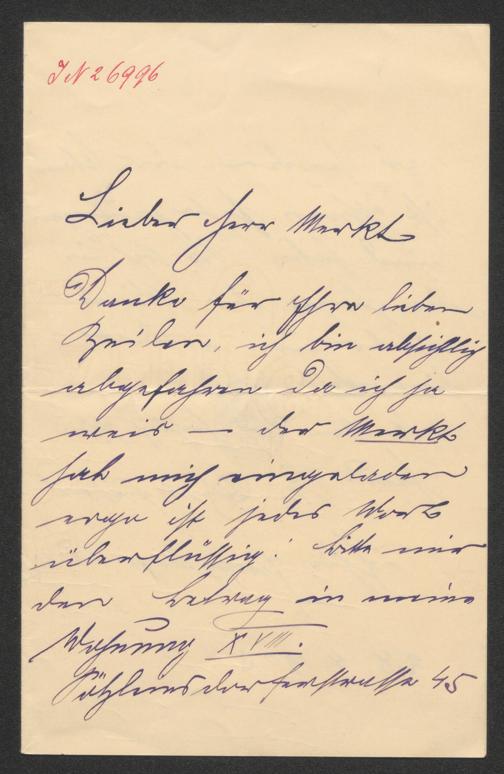 IN 26996
Lieber Herr Merkt
Danke für Ihre lieben
Zeilen, ich bin absichtlich
abgefahren da ich ja
weis — der Merkt
hat mich eingeladen
ergo ist jedes Wort
überflüssig! bitte mir
den Betrag in meine
Wohnung XVIII.
Pötzleinsdorferstrasse 45